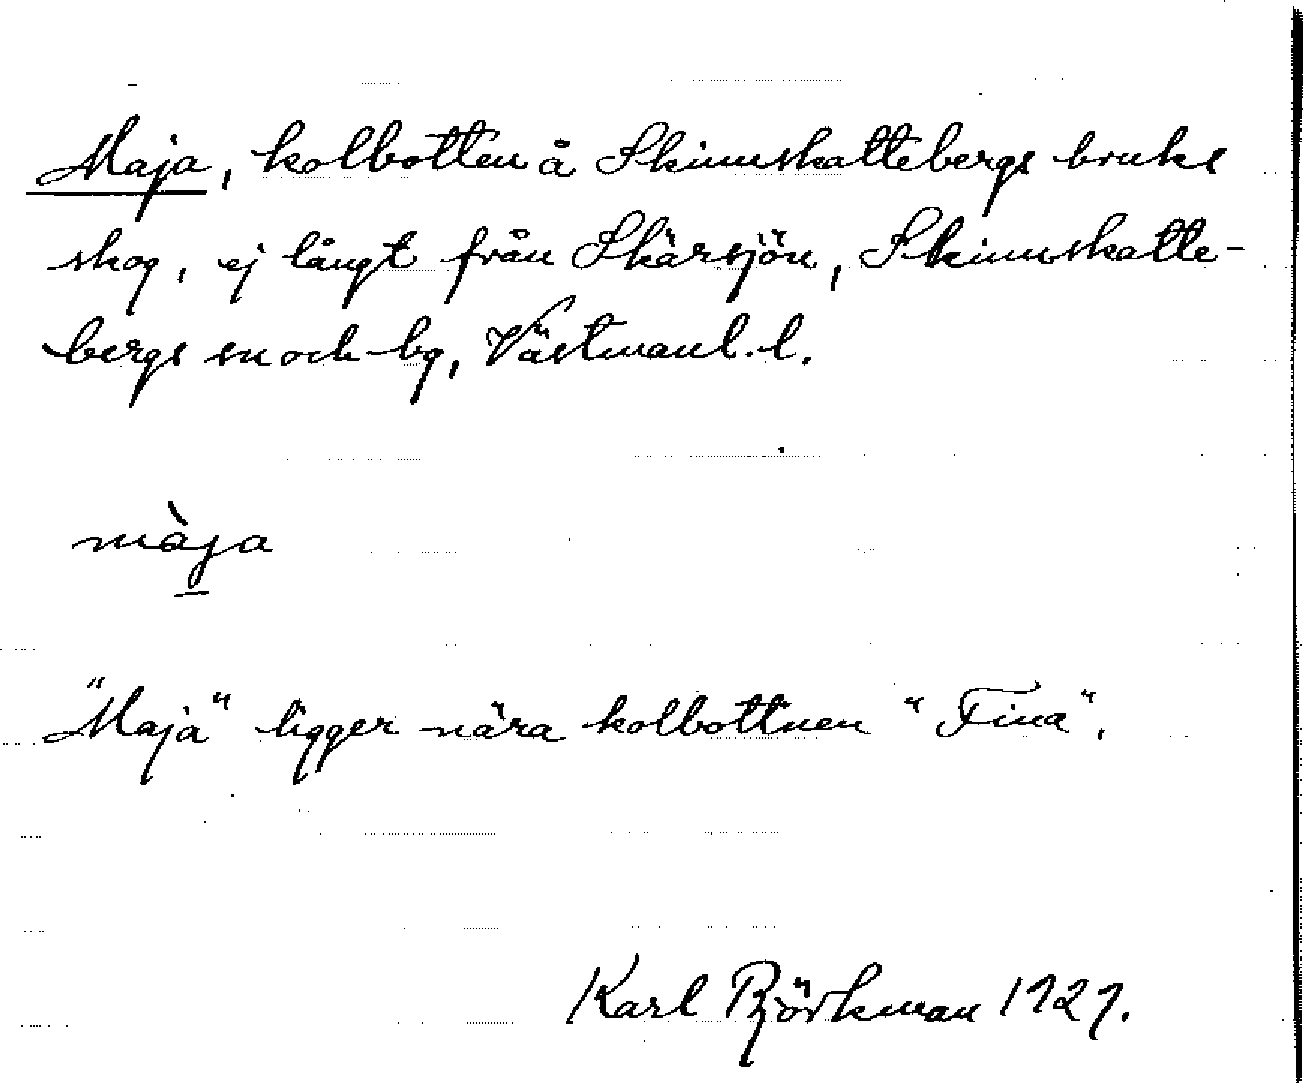 Maja, kolbotten å Skinnskattebergs bruks
skog, ej långt från Skärsjön, Skinnskatte-
bergs sn och bg, Västmanl. l.
màja
"Maja" ligger nära kolbottnen "Fina".
Karl Björkman 1927.